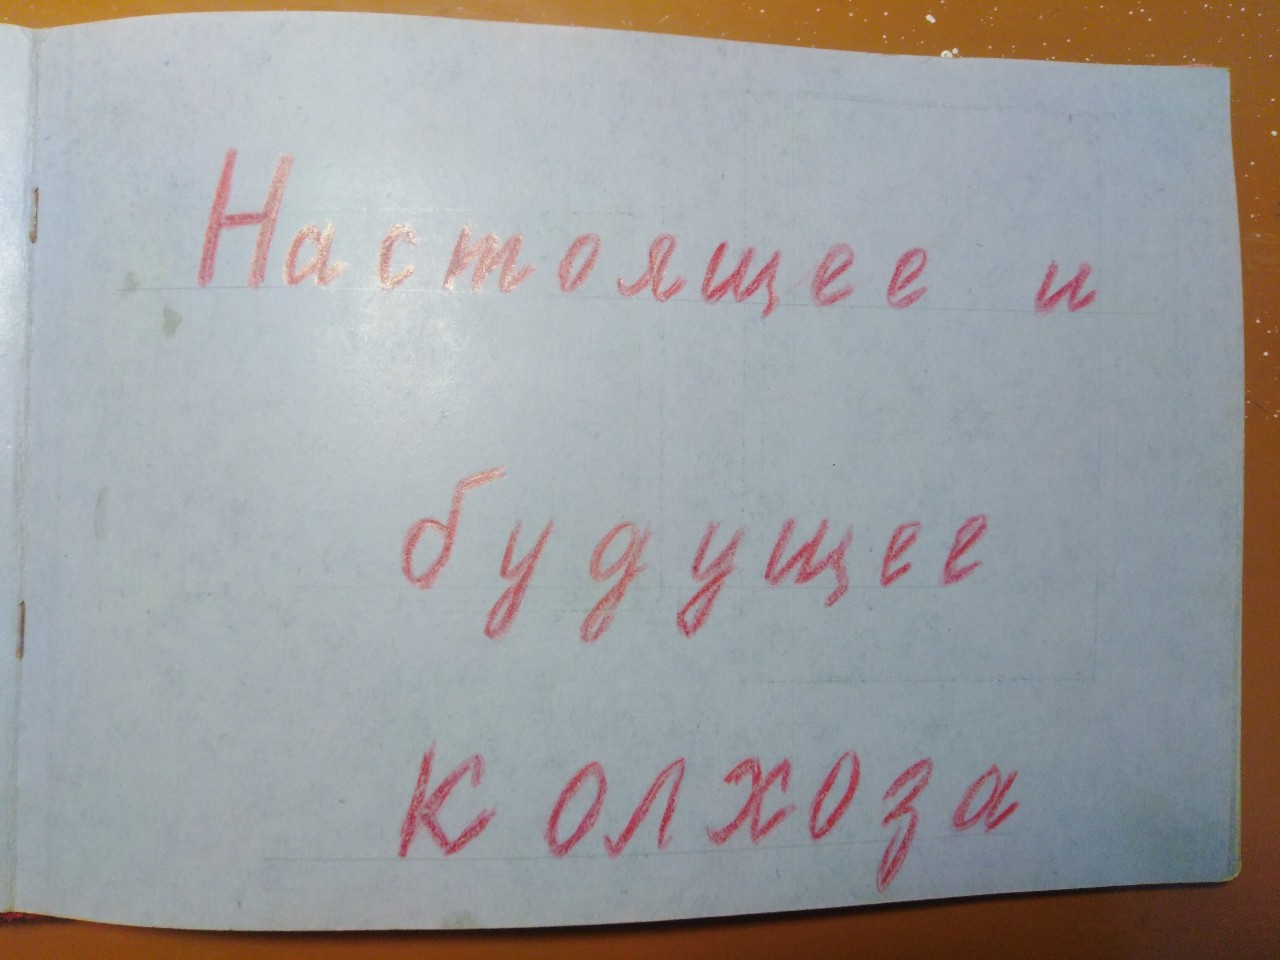 Настоящее и
будущее
колхоза